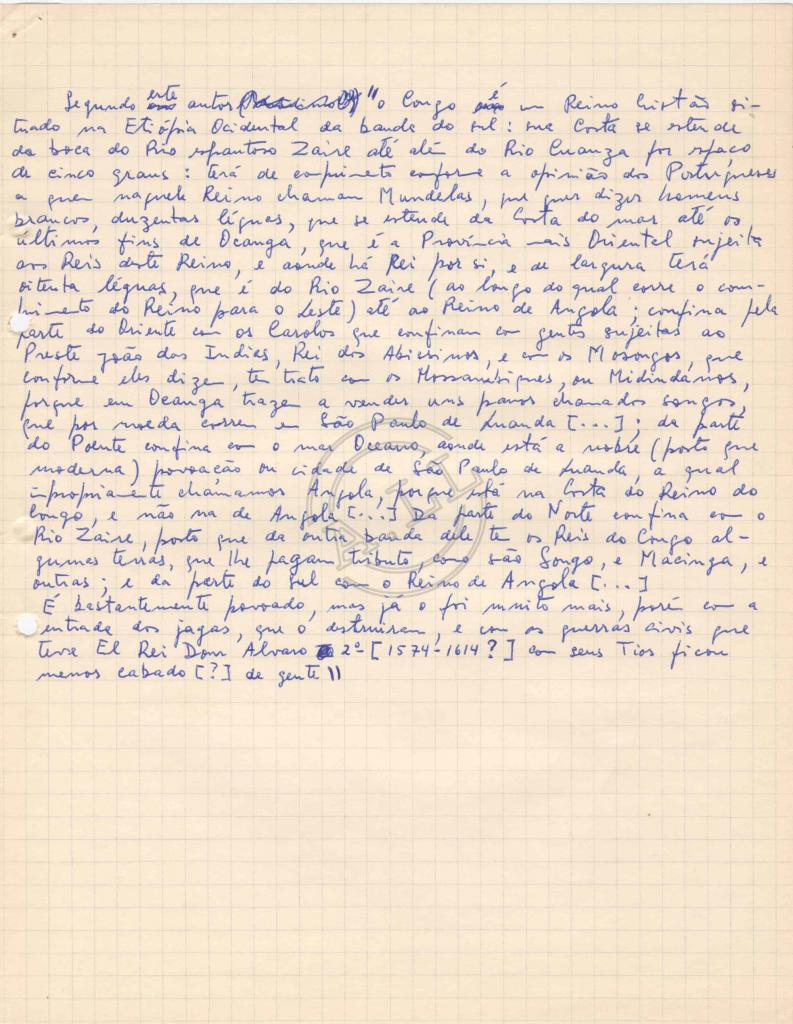 Segundo este autor "o Congo é um Reino Cristão si-
tuado na Etiópia Ocidental da banda do sul: sua Costa se estende
da boca do Rio espantoso Zaire até além do Rio Cuanza por espaço
de cinco graus: terá de comprimento conforme a opinião dos Portugueses
a quem naquele Reino chamam Mundelas, que quer dizer homens
brancos, duzentas léguas, que se estende da Costa do mar até os
últimos fins de Ocanga, que é a Província mais Oriental sujeita
aos Reis deste Reino, e aonde há Rei por si, e de largura terá
oitenta léguas, que é do Rio Zaire (ao longo do qual corre o com-
primento do Reino para o Leste) até ao Reino de Angola; confina pela
parte do Oriente com os Carolos que confinam com gentes sujeitas ao
Preste João das Indias, Rei dos Abissinos, e com os Mosongos, que
conforme eles dizem, tem trato com os Mossambiques, ou Midindános,
porque em Ocanga trazem a vender uns panos chamados songos,
que por moeda correm em São Paulo de Luanda [...]; da parte
do Poente confina com o mar Oceano, aonde está a nobre (posto que
moderna) povoação ou cidade de São Paulo de Luanda, a qual
impropriamente chamamos Angola, porque está na Costa do Reino do
Congo, e não na de Angola [...] Da parte do Norte confina com o
Rio Zaire, posto que da outra banda dele tem os Reis do Congo al-
gumas terras, que lhe pagam tributo, como são Songo, e Macinga, e
outras; e da parte do Sul com o Reino de Angola [...]
É bastantemente povoado, mas já o foi muito mais, porém com a
entrada dos jagas, que o destruiram, e com as guerras civis que
teve El Rei Dom Alvaro 2º [1574-1614?] com seus Tios ficou
menos cabado [?] de gente"